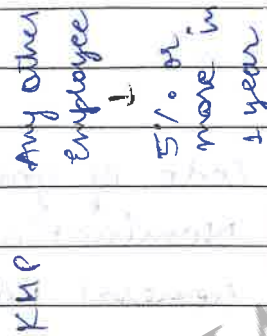 KMP
Any other
Employee
-
5% or
more in
1 year